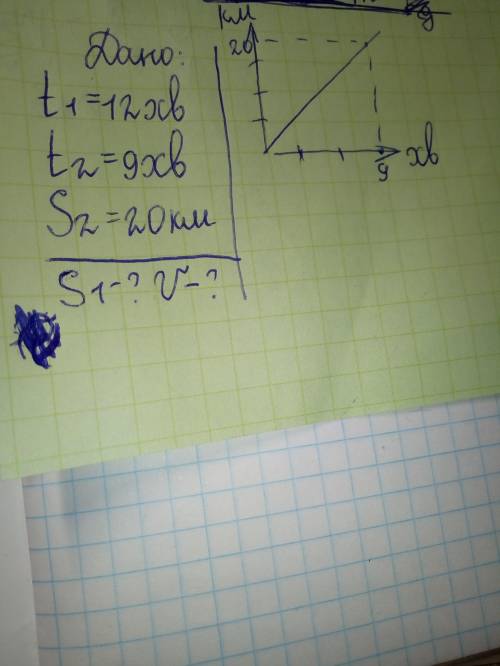 Дано:
t1=12хв
t2=9хв
S2=20км
S1-? V-?
км
20
9
хв